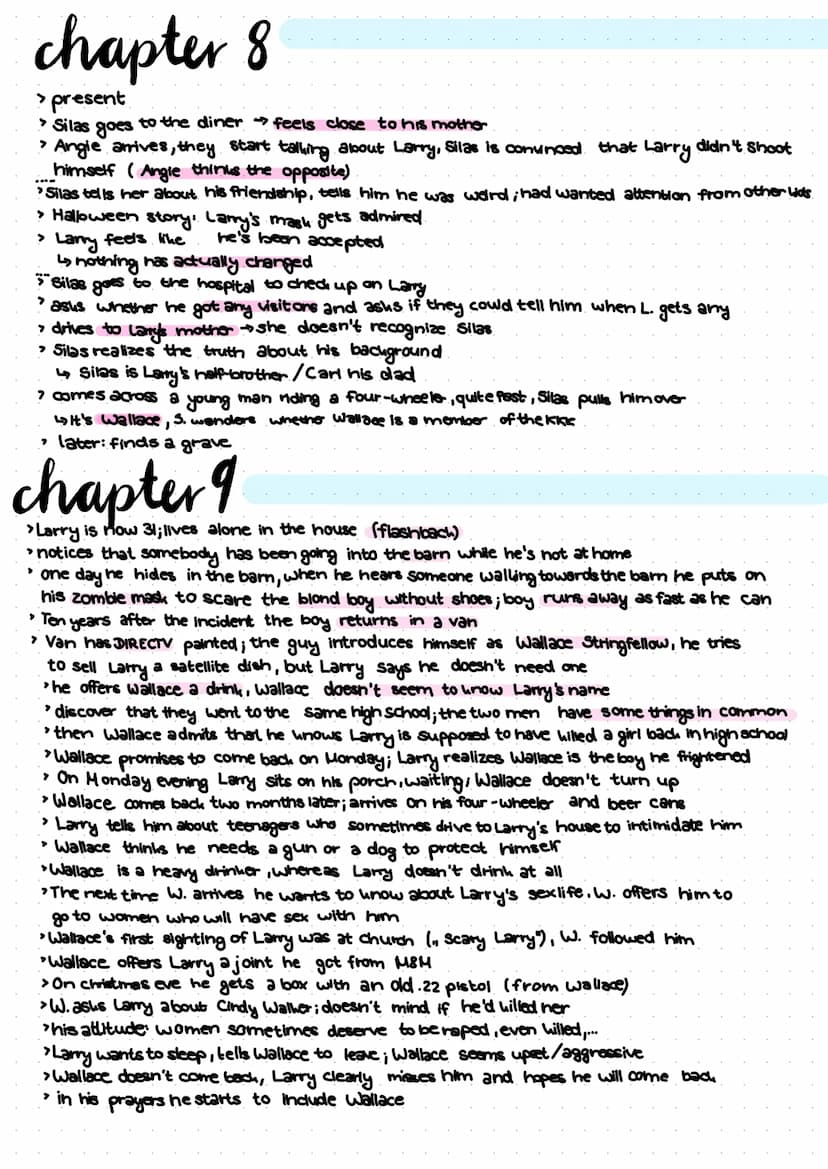 chapter 8
> present
> Silas goes to the diner → feels close to his mother
> Angie arrives, they start talking about Larry, Silas is convinced that Larry didn't shoot
himself (Angie thinks the opposite)
> Silas tells her about his friendship, tells him he was weird; had wanted attention from other kids
> Halloween story: Larry's mask gets admired
> Larry feels like he's been accepted
↳ nothing has actually changed
> Silas goes to the hospital to check up on Larry
> asks whether he got any visitors and asks if they could tell him when L. gets any
> drives to Larry's mother → she doesn't recognize Silas
> Silas realizes the truth about his background
↳ Silas is Larry's half-brother / Carl his dad
> comes across a young man riding a four-wheeler, quite fast, Silas pulls him over
↳ It's Wallace, S. wonders whether Wallace is a member of the KKK
> later: finds a grave
chapter 9
> Larry is now 31; lives alone in the house (flashback)
> notices that somebody has been going into the barn while he's not at home
> one day he hides in the barn, when he hears someone walking towards the barn he puts on
his zombie mask to scare the blond boy without shoes; boy runs away as fast as he can
> Ten years after the incident the boy returns in a van
> Van has DIRECTV painted; the guy introduces himself as Wallace Stringfellow, he tries
to sell Larry a satellite dish, but Larry says he doesn't need one
> he offers Wallace a drink, Wallace doesn't seem to know Larry's name
> discover that they went to the same high school; the two men have some things in common
> then Wallace admits that he knows Larry is supposed to have killed a girl back in high school
> Wallace promises to come back on Monday; Larry realizes Wallace is the boy he frightened
> On Monday evening Larry sits on his porch, waiting, Wallace doesn't turn up
> Wallace comes back two months later; arrives on his four-wheeler and beer cans
> Larry tells him about teenagers who sometimes drive to Larry's house to intimidate him
> Wallace thinks he needs a gun or a dog to protect himself
> Wallace is a heavy drinker, whereas Larry doesn't drink at all
> The next time W. arrives he wants to know about Larry's sexlife. W. offers him to
go to women who will have sex with him
> Wallace's first sighting of Larry was at church („Scary Larry"), W. followed him
> Wallace offers Larry a joint he got from M&M
> On christmas eve he gets a box with an old .22 pistol (from Wallace)
> W. asks Larry about Cindy Walker; doesn't mind if he'd killed her
> his attitude: women sometimes deserve to be raped, even killed,...
> Larry wants to sleep, tells Wallace to leave; Wallace seems upset/aggressive
> Wallace doesn't come back, Larry clearly misses him and hopes he will come back
> in his prayers he starts to include Wallace